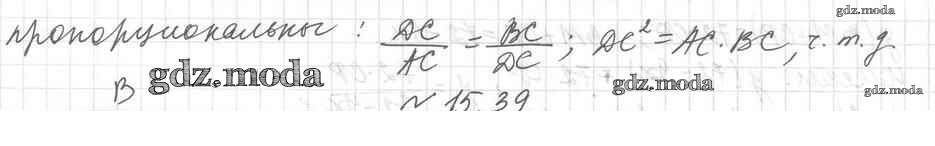 gdz.moda
пропорциональны: DC/AC = BC/DC; DC² = AC · BC, ч.т.д.
B gdz.moda gdz.moda gdz.moda
№ 15.39